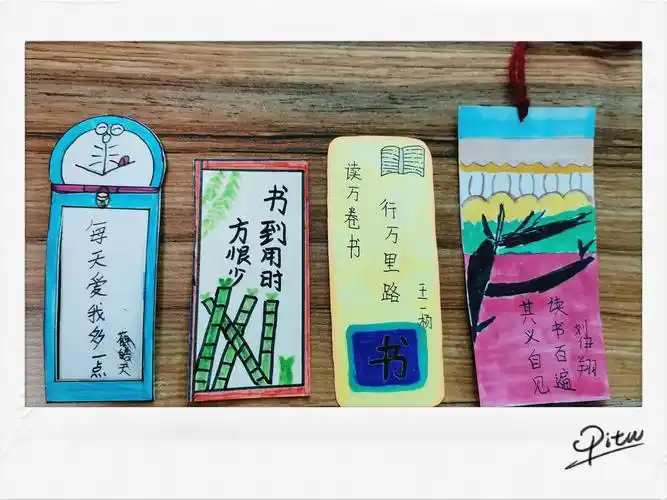 每天爱我多一点
书到用时
方恨少
读万卷书
行万里路
王一杨
书
读书百遍
其义自见
Pitu